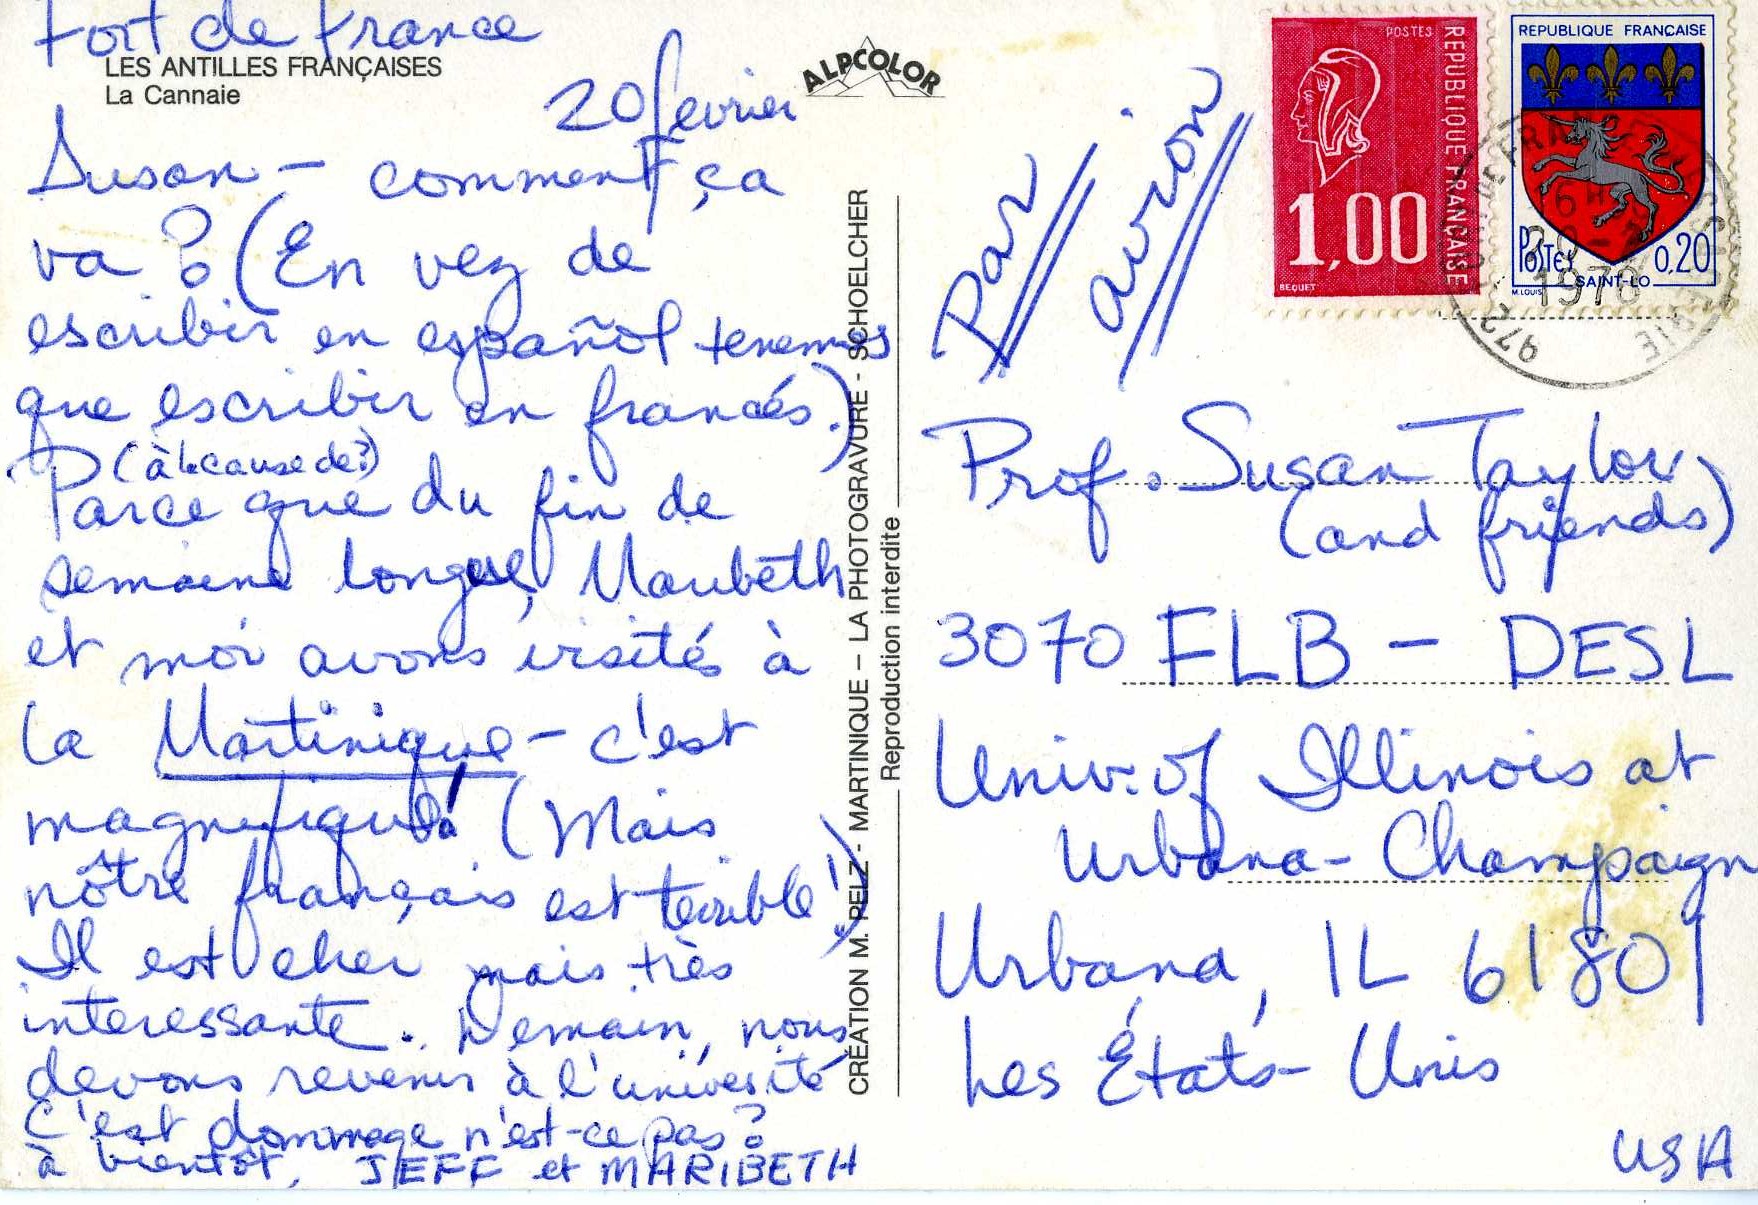 Fort de France
LES ANTILLES FRANÇAISES
La Cannaie
ALPCOLOR
20 fevrier
Susan - comment ça
va? (En vez de
escribir en español tenemos
que escribir en francés.)
(à la cause de?)
Parce que du fin de
semaine longue, Maribeth
et moi avons visités à
la Martinique - c'est
magnifique! (Mais
nôtre français est terrible!)
Il est cher mais très
interessante. Demain, nous
devons revenir à l'université
C'est dommage n'est-ce pas?
à bientôt, JEFF et MARIBETH
CRÉATION M. PELZ - MARTINIQUE - LA PHOTOGRAVURE - SCHOELCHER
Reproduction interdite
Par avion
POSTES
REPUBLIQUE FRANÇAISE
1,00
BEQUET
REPUBLIQUE FRANÇAISE
POSTES
0,20
M.LOUIS
SAINT-LO
972
1978
Prof. Susan Taylor
(and friends)
3070 FLB - DESL
Univ. of Illinois at
Urbana - Champaign
Urbana, IL 61801
Les États-Unis
USA